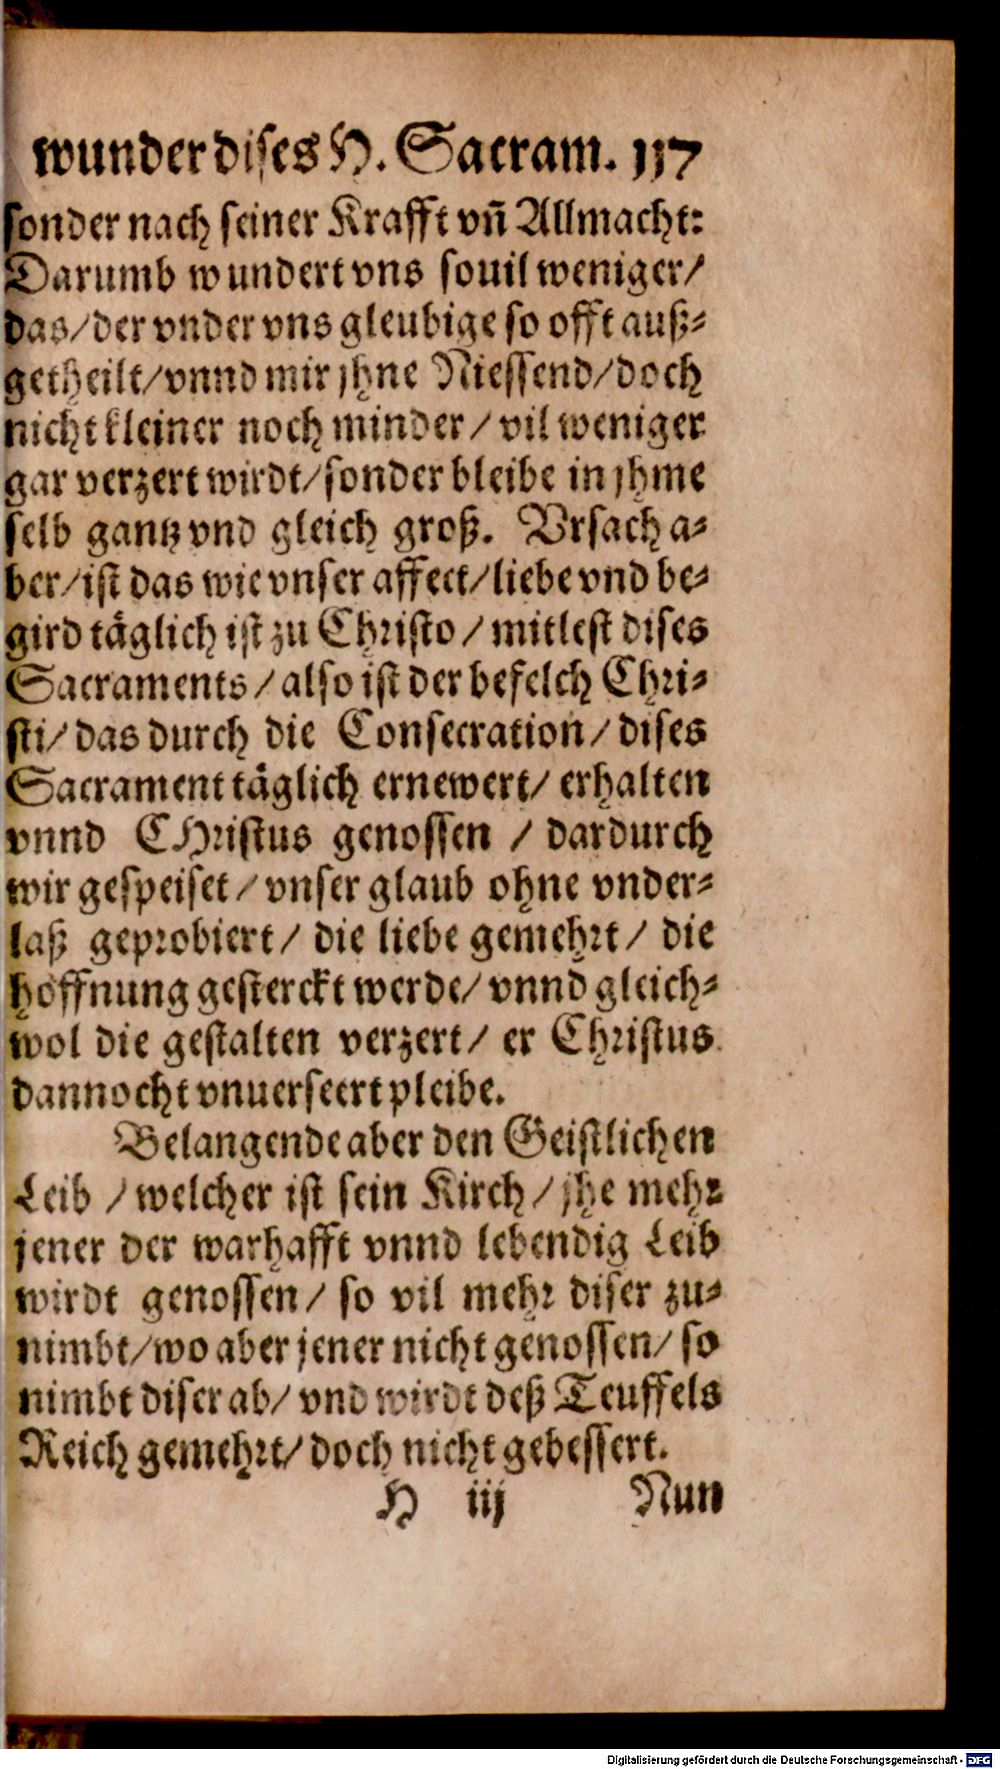 wunder dises H. Sacram. 117
sonder nach seiner Krafft vñ Allmacht:
Darumb wundert vns souil weniger/
das/der vnder vns gleubige so offt auß-
getheilt/vnnd mir jhne Niessend/doch
nicht kleiner noch minder/vil weniger
gar verzert wirdt/sonder bleibe in jhme
selb gantz vnd gleich groß. Vrsach a-
ber/ist das wie vnser affect/liebe vnd be-
gird täglich ist zu Christo/mitlest dises
Sacraments/also ist der befelch Chri-
sti/das durch die Consecration/dises
Sacrament täglich ernewert/erhalten
vnnd CHristus genossen/dardurch
wir gespeiset/vnser glaub ohne vnder-
laß geprobiert/die liebe gemehrt/die
hoffnung gesterckt werde/vnnd gleich-
wol die gestalten verzert/er Christus
dannocht vnuerseert pleibe.
Belangende aber den Geistlichen
Leib/welcher ist sein Kirch/jhe mehr
jener der warhafft vnnd lebendig Leib
wirdt genossen/so vil mehr diser zu-
nimbt/wo aber jener nicht genossen/so
nimbt diser ab/vnd wirdt deß Teuffels
Reich gemehrt/doch nicht gebessert.
H iij Nun
Digitalisierung gefördert durch die Deutsche Forschungsgemeinschaft - DFG